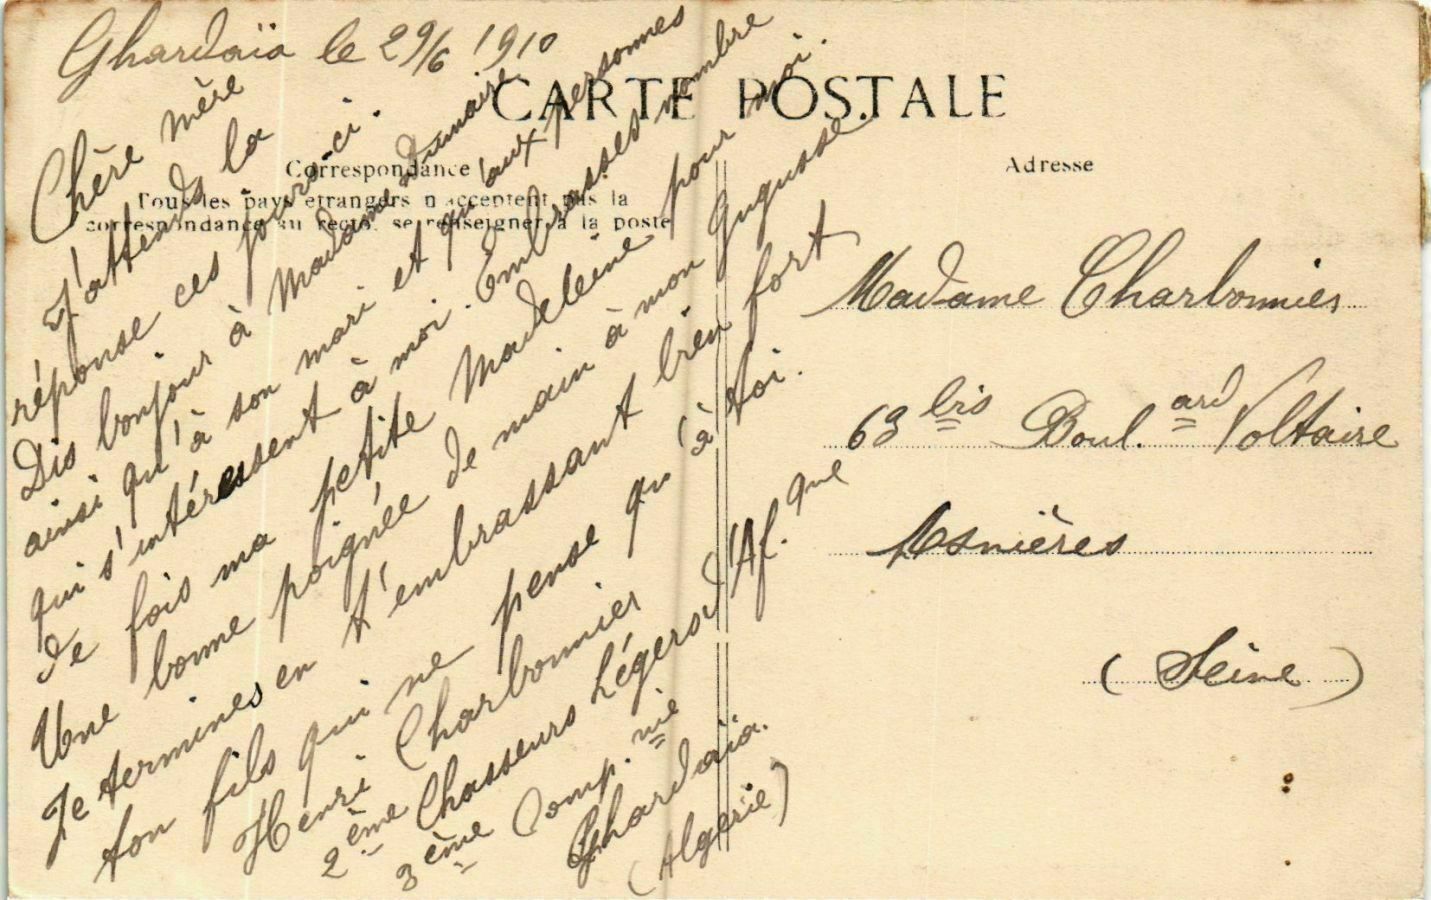 Ghardaïa le 29/6 1910
CARTE POSTALE
Correspondance
Tous les pays étrangers n'acceptent pas la
correspondance au recto, se renseigner à la poste
Chère mère
J'attends la
réponse ces jours-ci.
Dis bonjour à Madame Dumaire
ainsi qu'à son mari et qu'aux personnes
qui s'intéressent à moi. Embrasses nombre
de fois ma petite Madeleine pour moi.
Une bonne poignée de main à mon Gugusse.
Je termines en t'embrassant bien fort
ton fils qui ne pense qu'à toi.
Henri Charbonnier
2ème Chasseurs Légers d'Af.que
3ème Comp.nie
Ghardaïa.
(Algérie)
Adresse
Madame Charbonnier
63 bis Boul.ard Voltaire
Asnières
(Seine)